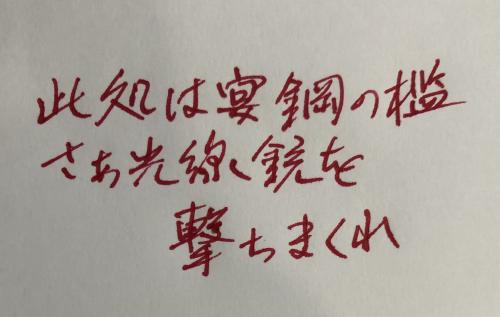 此処は宴鋼の檻
さあ光線銃を
撃ちまくれ